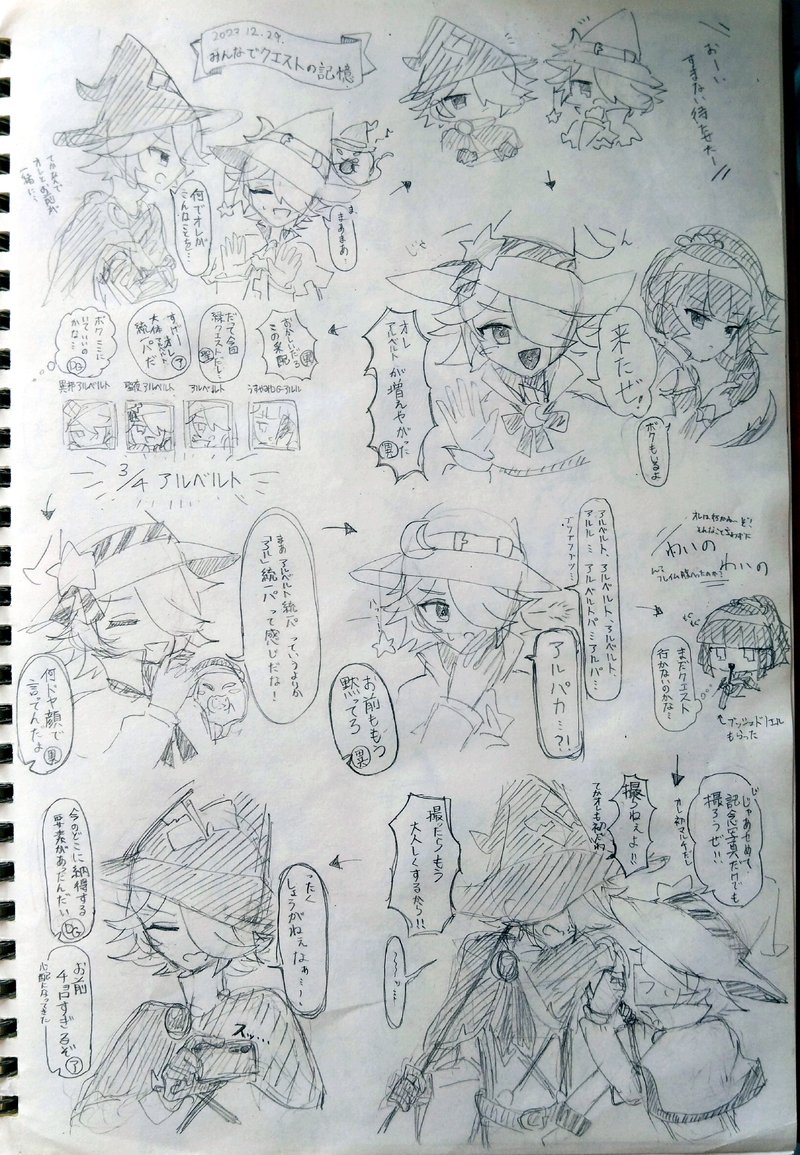 2023 12.29.
みんなでクエストの記憶
おーい
すまない待たせたー
てかなんで
オレとお前が
一緒に…
何でオレが
こんなことを…
ま、
まあまあ…
来たぜ!
ボクもいるよ
オレ
アルベルト
が増えやがった
異
おかしいだろ
この采配
異
だって今回
緑クエストだし…
聖
すげーオレ
大体アルベルト
統一パだ
ア
ボクここに
いていいの
かな…
DG
異邦アルベルト
聖夜アルベルト
アルベルト
3/4 アルベルト
まぁ アルベルト統一パっていうよりかは
「アル」統一パって感じだな!
何ドヤ顔で
言ってんだよ
異
アルベルト、アルベルト、アルベルト
アルル…アルベルトパ…アルパ…
ブツブツ…
アルパカ…?!
お前ももう
黙ってろ
異
わいの
わいの
まだクエスト
行かないのかな…
ブッシュドノエル
もらった
じゃあせめて
記念写真だけでも
撮ろうぜ!!
オレ初マルチだし
撮らねぇよ!!
てかオレも初だわ
撮ったらもう
大人しくするから!!
〜〜ッ…
ったく
しょうがねぇなぁ…
スッ…
今のどこに納得する
要素があったんだい
DG
お前
チョロすぎるぞ
ア
心配になってきた